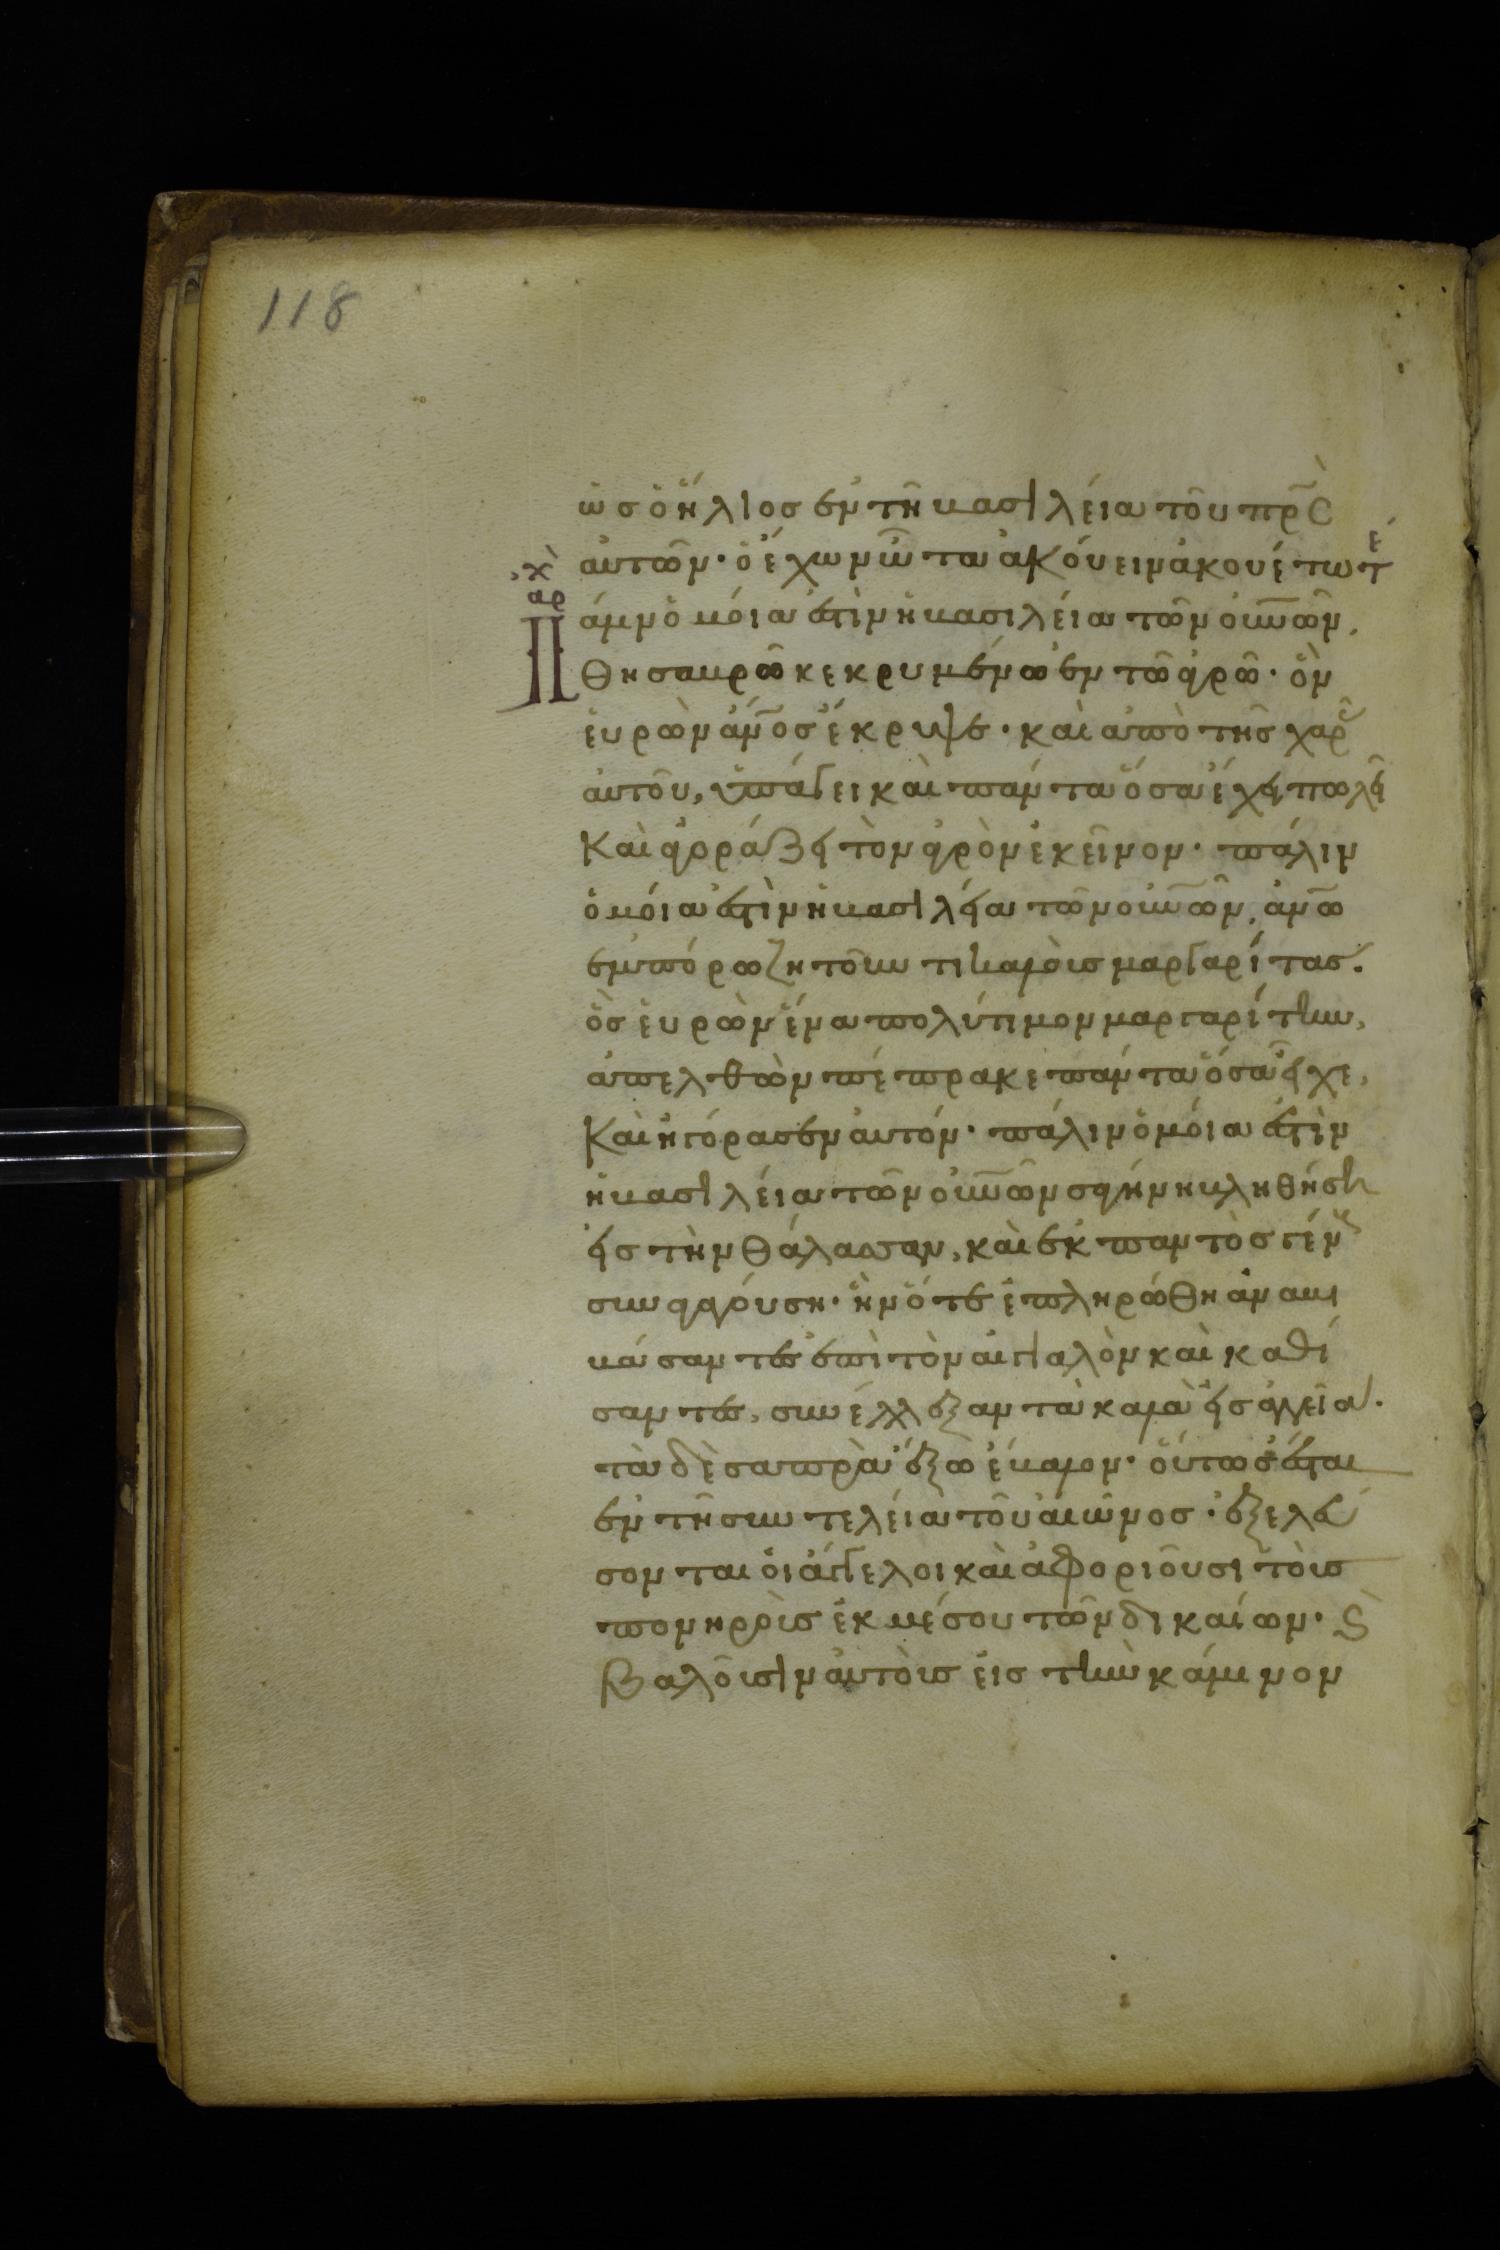 118
ὡς ὁ ἥλιος ἐν τῆ βασιλεία τοῦ πρ̅ς
αὐτῶν· ὁ ἔχων ὦτα ἀκούειν ἀκουέτω τέ
ἀρχ
Πάλιν ὁμοία ἐστὶν ἡ βασιλεία τῶν οὐν̅ῶν,
θησαυρῶ κεκρυμένω ἐν τῶ ἀγρῶ· ὃν
εὑρὼν ἄν̅ος ἔκρυψε· καὶ ἀπὸ τῆς χαρᾶς
αὐτοῦ, ὑπάγει καὶ πάντα ὅσα ἔχει πωλεῖ
καὶ ἀγοράζει τὸν ἀγρὸν ἐκεῖνον· πάλιν
ὁμοία ἐστὶν ἡ βασιλεία τῶν οὐν̅ῶν, ἀν̅ω
ἐμπόρω ζητοῦντι καλοὺς μαργαρίτας·
ὃς εὑρὼν ἕνα πολύτιμον μαργαρίτην,
ἀπελθὼν πέπρακε πάντα ὅσα εἶχε,
καὶ ἠγόρασεν αὐτόν· πάλιν ὁμοία ἐστὶν
ἡ βασιλεία τῶν οὐν̅ῶν σαγήνη βληθήση
εἰς τὴν θάλασσαν, καὶ ἐκ παντὸς γένους
συναγαγούση· ἣν ὅτε ἐπληρώθη ἀναβι
βάσαντες ἐπὶ τὸν αἰγιαλὸν καὶ καθί
σαντες, συνέλεξαν τὰ καλὰ εἰς ἀγγεῖα·
τὰ δὲ σαπρὰ ἔξω ἔβαλον· οὕτως ἔσται
ἐν τῆ συντελεία τοῦ αἰῶνος· ἐξελεύ
σονται οἱ ἄγγελοι καὶ ἀφοριοῦσι τοὺς
πονηροὺς ἐκ μέσου τῶν δικαίων· ϗ
βαλοῦσιν αὐτοὺς εἰς τὴν κάμινον